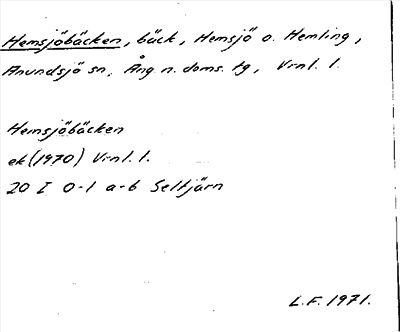 Hemsjöbäcken, bäck, Hemsjö o. Hemling,
Anundsjö sn, Ång. n. doms. tg, Vrnl. l.
Hemsjöbäcken
ek (1970) Vrnl. l.
20 I 0-1 a-b Seltjärn
L.F. 1971.